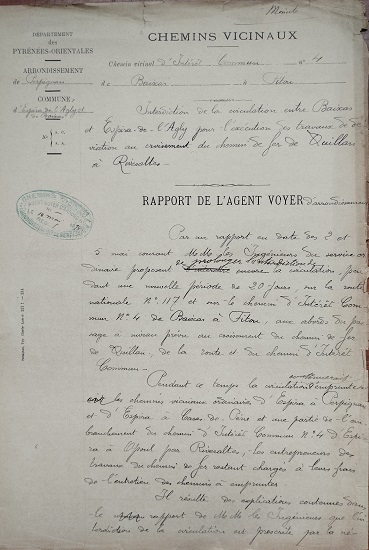 Minute
DÉPARTEMENT
des
PYRÉNÉES-ORIENTALES
ARRONDISSEMENT
de Perpignan
COMMUNE
d'Espira de l'Agly et
CHEMINS VICINAUX
Chemin vicinal d'Intérêt Commun n° 4
de Baixas à Fitou
Interdiction de la circulation entre Baixas
et Espira-de-l'Agly pour l'exécution des travaux de dé-
viation au croisement du chemin de fer de Quillan
à Rivesaltes.
RAPPORT DE L'AGENT VOYER d'arrondissement
Par un rapport en date des 2 et
5 mai courant MM. les Ingénieurs du service or-
dinaire proposent de prolonger l'interdiction de
encore la circulation pen-
dant une nouvelle période de 20 jours, sur la route
nationale N° 117 et sur le chemin d'Intérêt Com-
mun N° 4 de Baixas à Fitou, aux abords du pas-
sage à niveau prévu au croisement du chemin de fer
de Quillan, de la route et du chemin d'Intérêt
Commun.
Pendant ce temps la circulation emprunter
les chemins vicinaux ordinaires d'Espira à Perpignan
et d'Espira à Cases de Pène et une partie de l'em-
branchement du chemin d'Intérêt Commun N° 4 d'Espi-
ra à Opoul par Rivesaltes, les entrepreneurs des
travaux du chemin de fer restant chargés à leurs frais
de l'entretien des chemins à emprunter.
Il résulte des explications contenues dans
le rapport de MM. les Ingénieurs que l'in-
terdiction de la circulation est prescrite par la né-